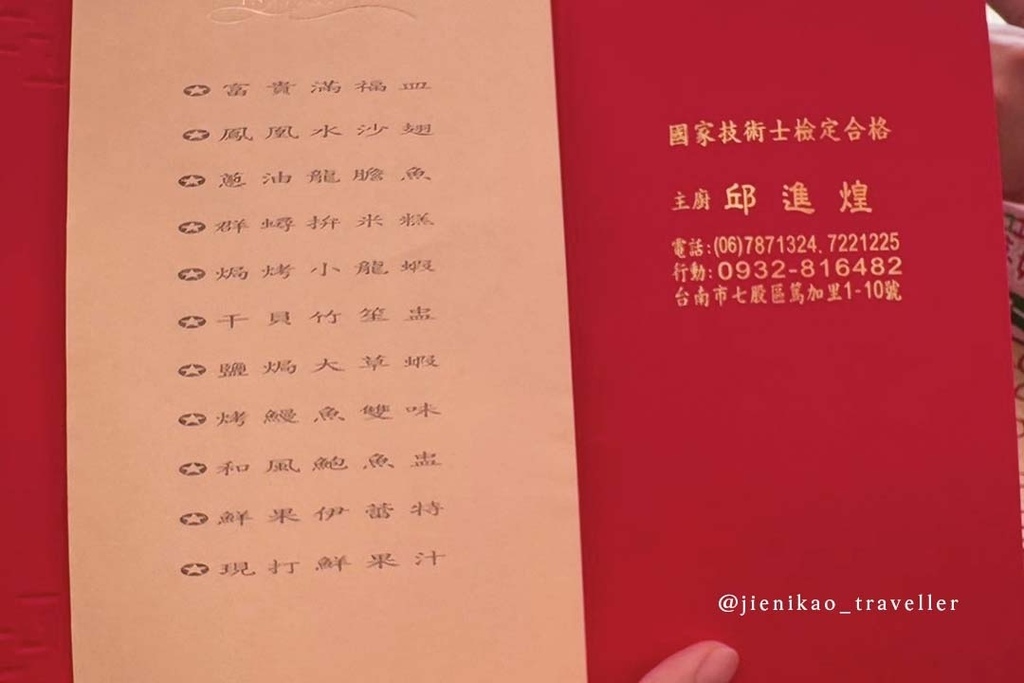 ✪富貴滿福皿
✪鳳凰水沙翅
✪蔥油龍膽魚
✪群蟳拚米糕
✪焗烤小龍蝦
✪干貝竹笙盅
✪鹽焗大草蝦
✪烤鰻魚雙味
✪和風鮑魚盅
✪鮮果伊蕾特
✪現打鮮果汁
國家技術士檢定合格
主廚 邱進煌
電話:(06)7871324.7221225
行動:0932-816482
台南市七股區篤加里1-10號
@jienikao_traveller